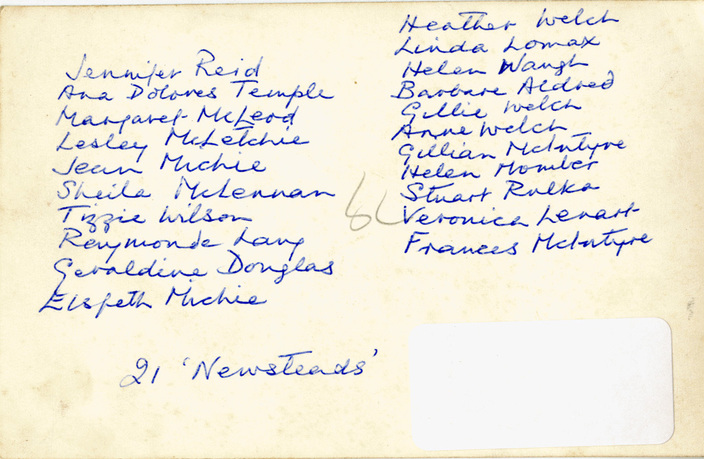 Jennifer Reid
Ana Dolores Temple
Margaret McLeod
Lesley McLetchie
Jean Michie
Sheila McLennan
Tizzie Wilson
Raymonde Lang
Geraldine Douglas
Elspeth Michie
Heather Welch
Linda Lomax
Helen Waugh
Barbara Aldred
Gillie Welch
Anne Welch
Gillian McIntyre
Helen
Stuart Rulka
Veronica Lenart
Frances McIntyre
21 'Newsteads'